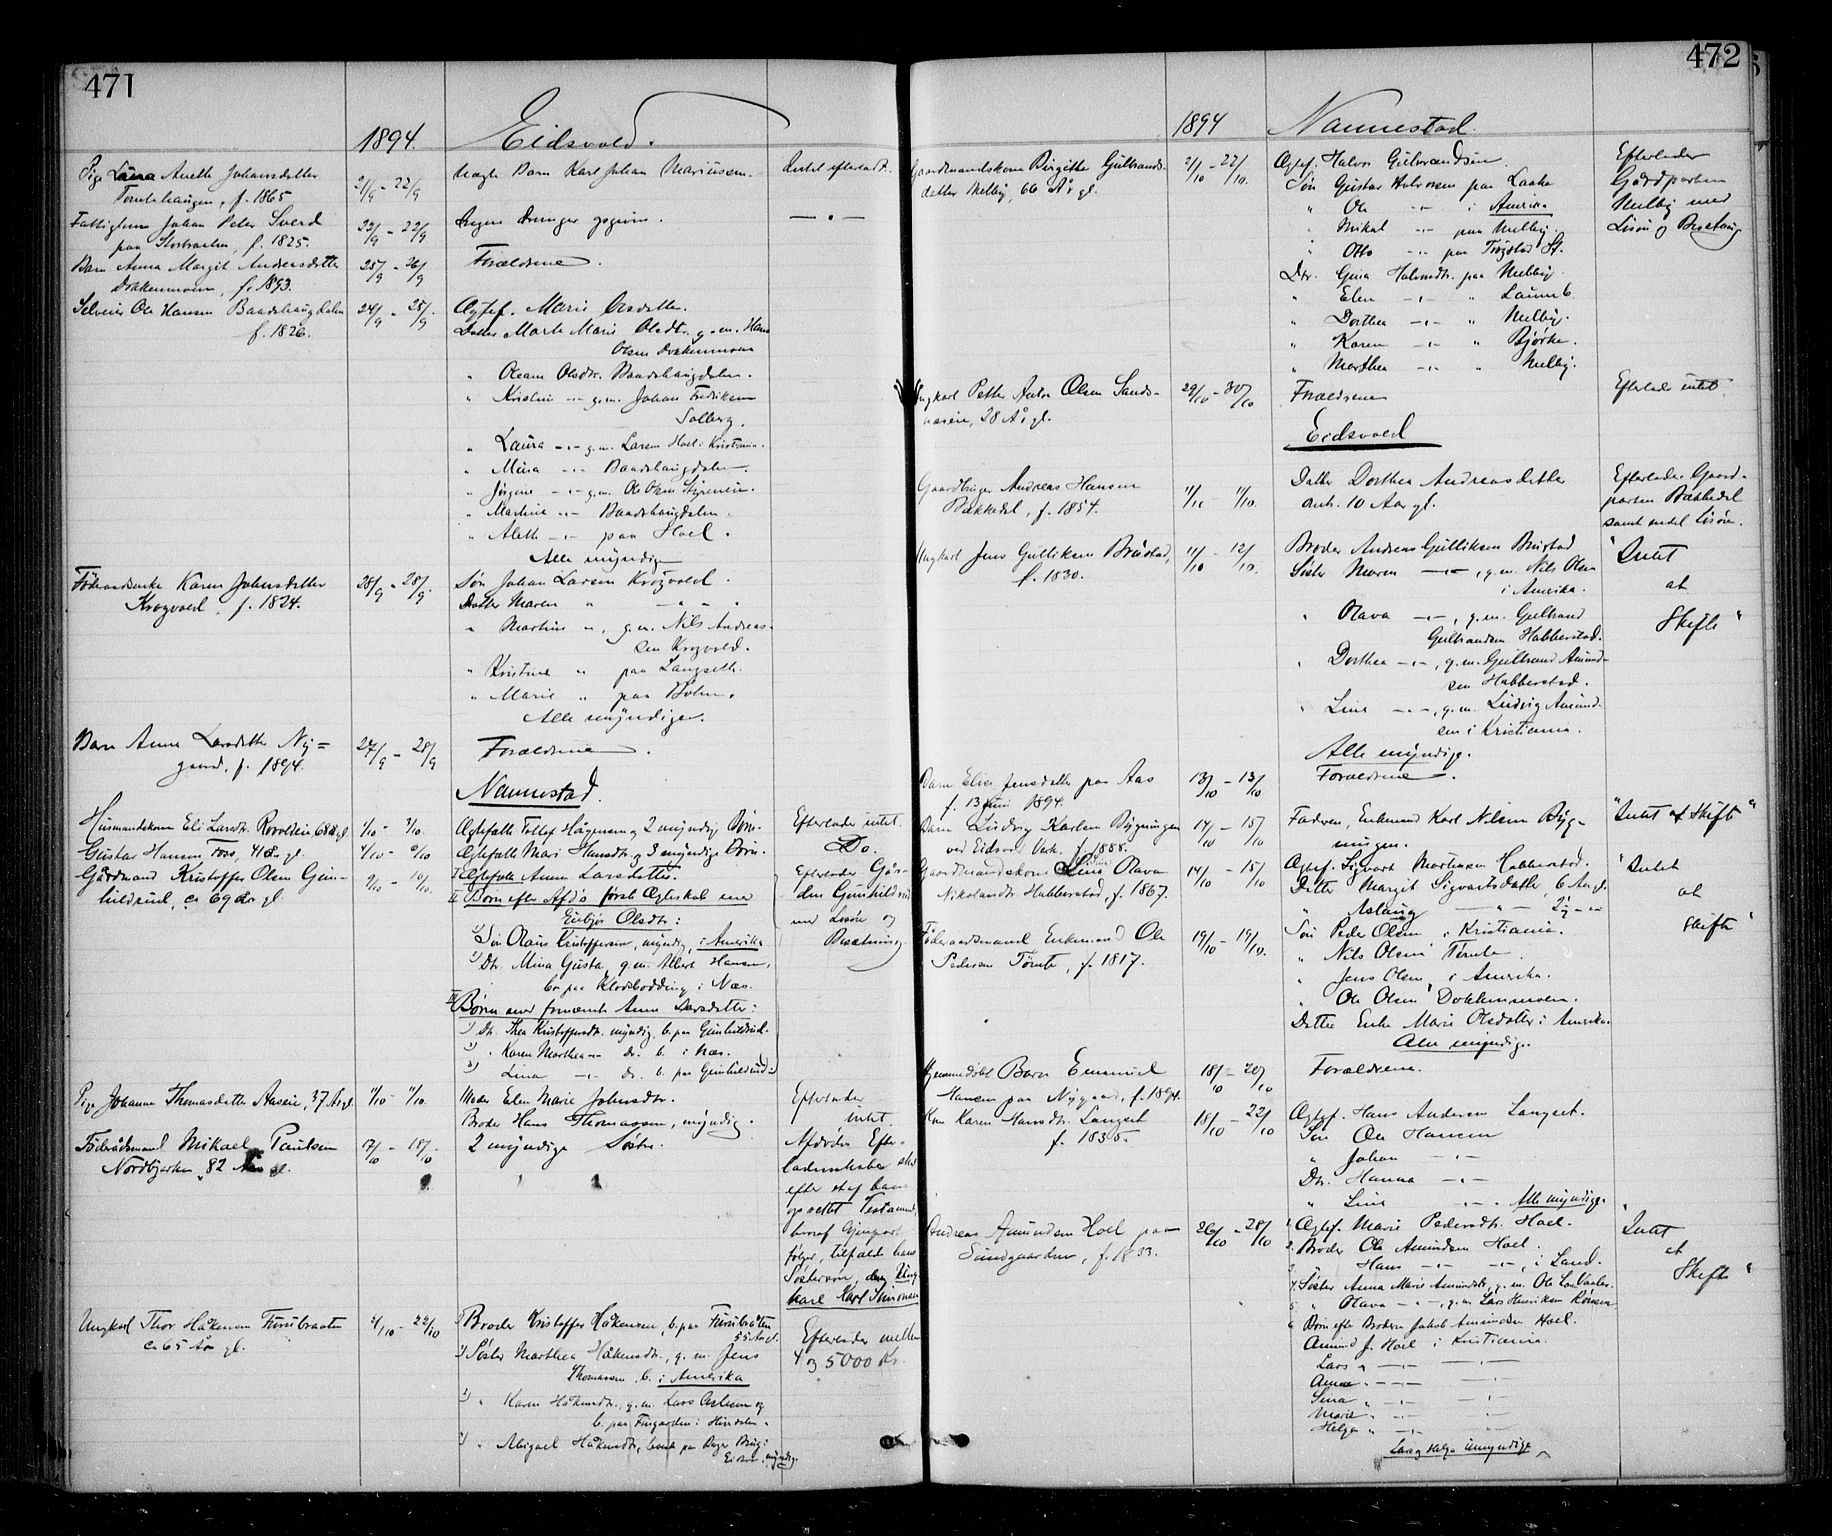 471
1894.
Eidsvold.
Pige Lina Aneth Johansdatter
Tomtehaugen, f. 1865
21/9 - 22/9
Uægte Barn Karl Johan Mariusen.
Intet efterladt.
Fattiglem Johan Peter Sverd
paa f. 1825.
22/9 - 22/9
Ingen opgivne.
— " —
Barn Anna Margit Andersdatter
Dokkenmoen, f. 1893.
25/9 - 26/9
Forældrene.
Selveier Ole Hansen Baadshaugdalen
f. 1826.
24/9 - 25/9
Ægtef. Marie Olsdatter.
Datter Marte Marie Olsdt. g. m. Hans
Olsen Dokkenmoen
" Oleane Olsdtr. Baadshaugdalen.
" Kristine -"- g. m. Johan Fredriksen
Solberg.
" Laura -"- g. m. Larsen Hoel i Kristiania.
" Mina -"- Baadshaugdalen.
" Jørgine -"- g. m. Ole Olsen Styrieneie.
" Martine -"- Baadshaugdalen.
" Alette -"- paa Hoel.
Alle myndige
Føderaadsenke Karen Johnsdatter
Krogvold, f. 1824.
28/9 - 28/9.
Søn Johan Larsen Krogvold.
Datter Maren " -"-
" Martine ", g. m. Nils Andreas-
sen Krogvold.
" Kristine " paa Langseth.
" Marie " paa Bøhn.
Alle myndige.
Barn Anna Larsdatter Ny-
gaard, f. 1894.
27/9 - 28/9
Forældrene.
Nannestad.
Husmandskone Eli Larsdtr. 68 År gl.
1/10 - 3/10.
Ægtefælle Tollef Hågensen og 2 myndig Børn.
Efterlader intet.
Gustav Hansen Foss, 41 År gl.
4/10 - 6/10
Ægtefælle Mari Hansdtr. og 3 myndige Børn.
Do.
Gårdmand Kristoffer Olsen Gun-
hildrud, ca 69 År gl.
9/10 - 10/10.
I Ægtefælle Anne Larsdatter.
II Børn efter Afdø første Ægteskab med
Eubjør Olsdtr:
1) Søn Olaus Kristoffersen, myndig, i Amerika
2) Dtr. Mina Gusta, g. m. Albert Hansen,
bo paa Klodsbødding i Næs.
III Børn med fornævnte Anne Larsdatter:
1) Dtr. Thea Kristoffersdtr. myndig b. paa Gunhildrud.
2) " Karen Marthea -"- do. b. i Næs.
3) " Lina -"- do. b. paa Gunhildrud
Efterlader Går-
den Gunhildrud
med Løsøre og
Besætning.
Pige Johanne Thomasdatter Aaseie, 37 År gl.
11/10 - 11/10.
Moder Elen Marie Johnsdtr.
Broder Hans Thomassen, myndig.
Efterlader
intet.
Føderådsmand Mikael Paulsen
Nordbjerken, 82 År gl.
17/10 - 18/10
2 myndige Søstre
Afdødes Efter-
ladenskaber skal
efter et af ham
opsettet Testament,
hvoraf Gjenpart
følger, tilfalde hans
Søstersøn, Ung-
karl Karl Simonsen
Ungkarl Thor Håkensen Furubraaten
ca 65 År gl.
21/10 - 22/10
1) Broder Kristoffer Håkensen, b. paa Furubråten
55 År gl.
2) Søster Marthea Håkensdtr., g. m. Jens
Thomassen, b. i Amerika
3) " Karen Håkensdtr., g. m. Lars Carlsen og
b. paa i Hurdalen.
4) " Abigael Håkensdtr., boende paa Bøger Brug i
Eidsvold, myndig.
Efterlader mellem
4 og 5000 Kr.
472
1894
Nannestad.
Gaardmandskone Birgitte Gulbrands-
datter Melby, 66 År gl.
21/10 - 22/10.
Ægtef. Halvor Gulbrandsen.
Søn Gustav Halvorsen paa Laake
" Ole -"- i Amerika
" Mikal -"- paa Melby.
" Otto -"- paa Trøgstad St.
Dtr. Gina Halvorsdtr. paa Melby.
" Elen -"- "
" Dorthea -"- " Melby.
" Karen -"- " Bjørke.
" Marthea -"- " Melby.
Efterlader
Gårdparten
Melby med
Løsøre og Besætning
Ungkarl Petter Anton Olsen Sands-
næseie, 28 År gl.
29/10 - 30/10
Forældrene
Efterlader intet.
Eidsvold
Gaardbruger Andreas Hansen
Bækkedal, f. 1854.
11/10 11/10.
Datter Dorthea Andreasdatter
anb. 10 Aar gl.
Efterlader Gaard-
parten Bækkedal
samt endel Løsøre.
Ungkarl Jens Gulliksen Brustad,
f. 1830.
11/10 - 12/10.
Broder Andreas Gulliksen Brustad
Søster Maren -"-, g. m. Nils Olsen
i Amerika.
" Olava -"-, g. m. Gulbrand
Gulbrandsen Habberstad.
" Dorthea -"-, g. m. Gulbrand Amund-
sen Habberstad.
" Line -"-, g. m. Ludvig Amund-
sen i Kristiania.
Alle myndige.
"Intet
at
Skifte"
Barn Elise Jensdatter paa Aas
f. 13 Juni 1894.
13/10 - 13/10
Forældrene.
Barn Ludvig Karlsen Bygningen
ved Eidsvold Verk, f. 1888.
14/10 - 15/10
Faderen, Enkemand Karl Nilsen Byg-
ningen.
"Intet at Skifte"
Gaardmandskone Line Olava
Nikolaidtr. Habberstad, f. 1867.
14/10 - 15/10
Ægtef. Sigvart Martinsen Habberstad.
Datter Margit Sigvartsdatter, 6 Aar gl.
" Aslaug -"- 2½ -"-
"Intet
at
Skifte"
Føderaadsmand Enkemand Ole
Pedersen Tømte, f. 1817.
19/10 - 19/10.
Søn Peder Olsen i Kristiania.
" Nils Olsen i Tømte.
" Jens Olsen, i Amerika.
" Ole Olsen Dokkenmoen.
Datter Enke Marie Olsdatter i Amerika.
Alle myndige.
Hjemmedøbt Barn Emanuel
Hansen paa Nygaard, f. 1894.
18/10 - 20/10
Forældrene.
Kone Karen Hansdtr. Langset
f. 1835.
18/10 - 22/10
Ægtef. Hans Andersen Langset.
Søn Ole Hansen
" Johan -"-
Dtr. Hanna -"-
" Line -"-. Alle myndige.
Andreas Amundsen Hoel paa
Sundgaarden, f. 1833.
26/10 - 28/10
1. Ægtef. Marie Pedersdtr. Hoel.
2. Broder Ole Amundsen Hoel.
3. " Hans -"- -"-, i Land.
4. Søster Anna Marie Amundsdtr., g. m. Ole
5. " Olava -"-, g. m. Lars Henriksen
6. Børn efter Broderen Jakob Amundsen Hoel.
Amund J. Hoel i Kristiania.
Lars " -"-
Anna " -"-
Sina " -"-
Marie " -"-
Helga " -"-
Lars og Helga umyndige
"Intet
at
Skifte"